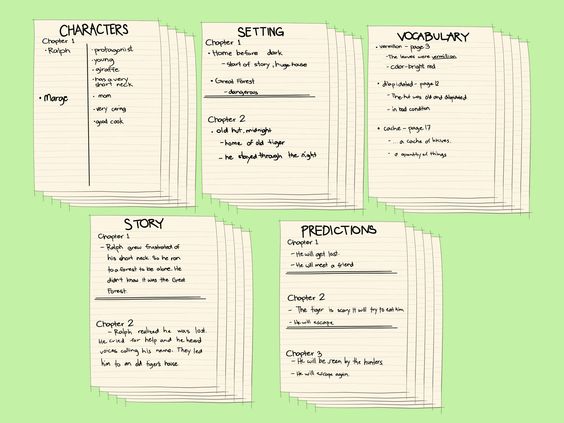 CHARACTERS
Chapter 1
• Ralph
• protagonist
• young
• giraffe
• has a very
short neck
• Marge
• mom
• very caring
• good cook
SETTING
Chapter 1
• Home before dark
- start of story, huge house
• Great Forest
- dangerous
Chapter 2
• old hut, midnight
- home of old tiger
- he stayed through the night
VOCABULARY
• vermilion - page 3
- The leaves were vermilion
- color-bright red
• dilapidated - page 12
- The hut was old and dilapidated
- in bad condition
• cache - page 17
- ... a cache of knives.
- a quantity of things
STORY
Chapter 1
- Ralph grew frustrated of
his short neck. So he ran
to a forest to be alone. He
didn't know it was the Great
Forest.
Chapter 2
- Ralph realized he was lost.
He cried for help and he heard
voices calling his name. They led
him to an old tiger's house
PREDICTIONS
Chapter 1
- He will get lost.
- He will meet a friend
Chapter 2
- The tiger is scary it will try to eat him
- He will escape
Chapter 3
- He will be seen by the hunters.
- He will escape again.